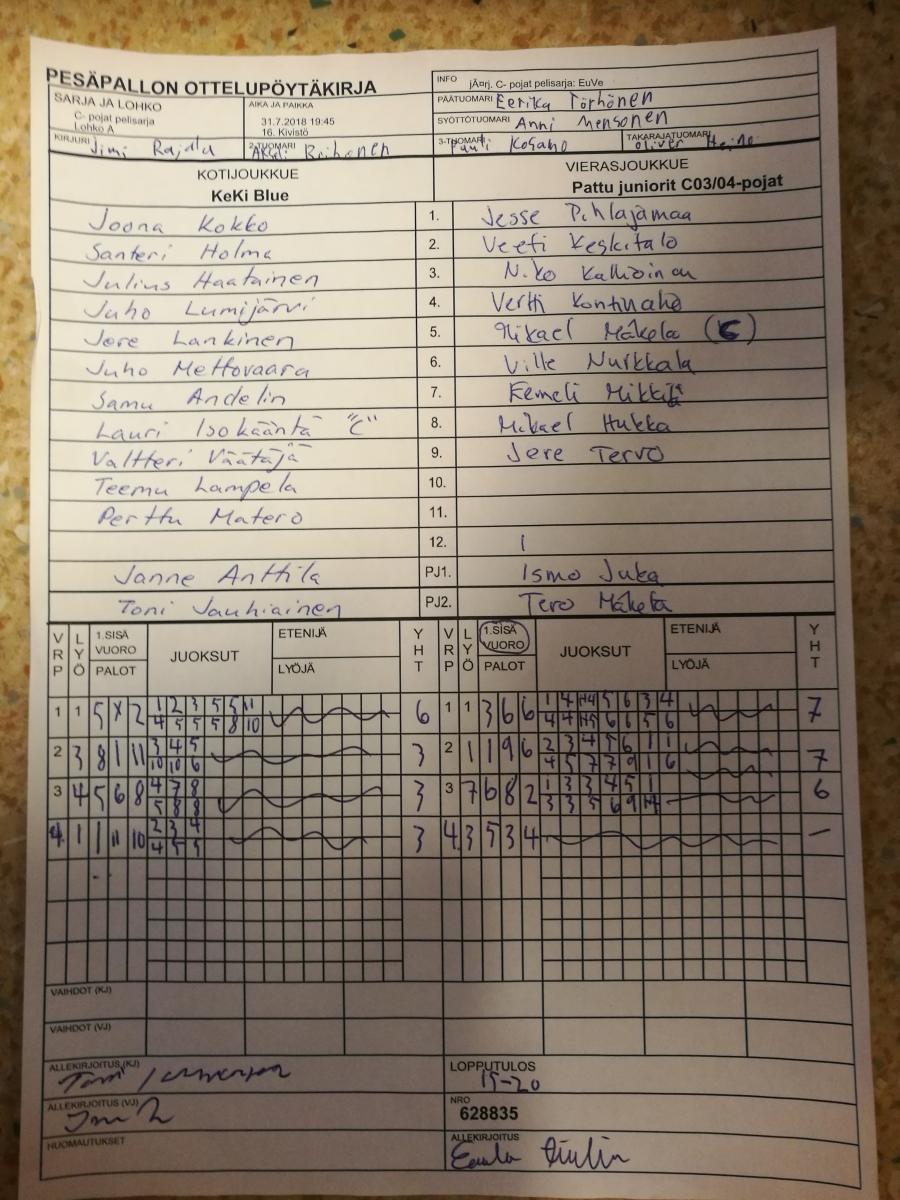 PESÄPALLON OTTELUPÖYTÄKIRJA
INFO jÃ¤rj. C- pojat pelisarja: EuVe
SARJA JA LOHKO
C- pojat pelisarja
Lohko A
AIKA JA PAIKKA
31.7.2018 19:45
16. Kivistö
PÄÄTUOMARI Eerika Törhönen
SYÖTTÖTUOMARI Anni
KIRJURI Jimi Rajala
2-TUOMARI
3-TUOMARI
TAKARAJATUOMARI Oliver Heino
KOTIJOUKKUE
KeKi Blue
VIERASJOUKKUE
Pattu juniorit C03/04-pojat
Joona Kokko 1. Jesse Pihlajamaa
Santeri Holma 2. Veeti Keskitalo
Julius Haatainen 3. Niko
Juho Lumijärvi 4. Vertti Kontinaho
Jere Lankinen 5. Mikael Mäkelä (C)
Juho Mettovaara 6. Ville Nurkkala
Samu Andelin 7. Eemeli Mikkilä
Lauri Isokääntä "C" 8. Mikael Hukka
Valtteri Väätäjä 9. Jere Tervo
Teemu Lampela 10.
Perttu Matero 11.
12.
Janne Anttila PJ1. Ismo Juka
Toni Jauhiainen PJ2. Tero Mäkelä
VRP LYÖ 1.SISÄ VUORO PALOT JUOKSUT ETENIJÄ LYÖJÄ YHT VRP LYÖ 1.SISÄ VUORO PALOT JUOKSUT ETENIJÄ LYÖJÄ YHT
1 1 5 X 2 1 2 3 5 5 11 6 1 1 3 6 6 1 4 5 6 3 4 7
4 5 5 5 8 10 4 4 6 6 5 6
2 3 8 1 11 3 4 5 3 2 1 1 9 6 2 3 4 5 6 1 1 7
10 10 6 4 5 7 7 9 1 6
3 4 5 6 8 4 7 8 3 3 7 6 8 2 1 3 3 4 5 1 6
5 8 8 3 3 5 6 9
4. 1 1 11 10 2 3 4 3 4. 3 5 3 4 –
4 5 5
VAIHDOT (KJ)
VAIHDOT (VJ)
ALLEKIRJOITUS (KJ)
LOPPUTULOS
15-20
ALLEKIRJOITUS (VJ)
NRO
628835
HUOMAUTUKSET
ALLEKIRJOITUS